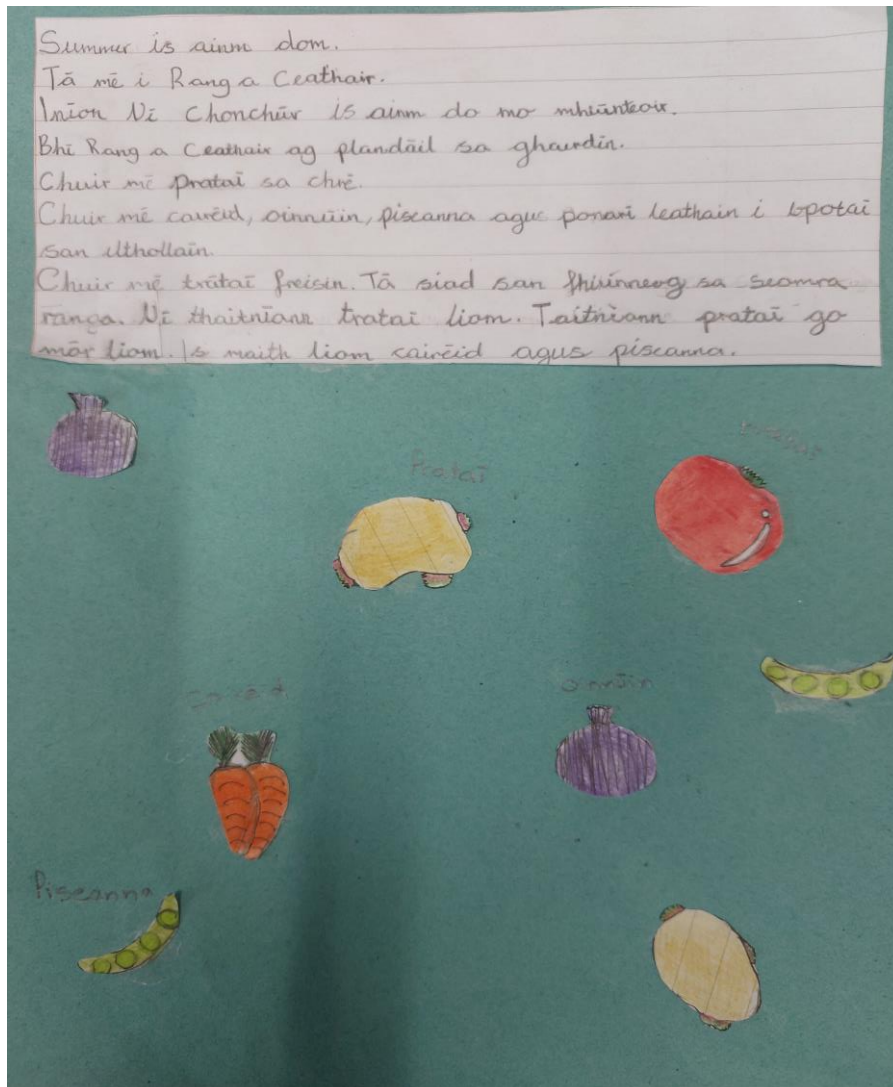 Summer is ainm dom.
Tā mē i Rang a Ceathair.
Inīon Nī Chonchūr is ainm do mo mhūinteoir.
Bhī Rang a Ceathair ag plandāil sa ghairdīn.
Chuir mē prataī sa chrē.
Chuir mē cairēid, oinniūin, piseanna agus ponairī leathain i bpotaī
san
Chuir mē trātaī freisin. Tā siad san fhuinneog sa seomra
ranga. Nī thaitnīonn trataī liom. Taitnīonn prataī go
mōr liom. Is maith liom cairēid agus piseanna.
Prataī
oinnūin
Piseanna